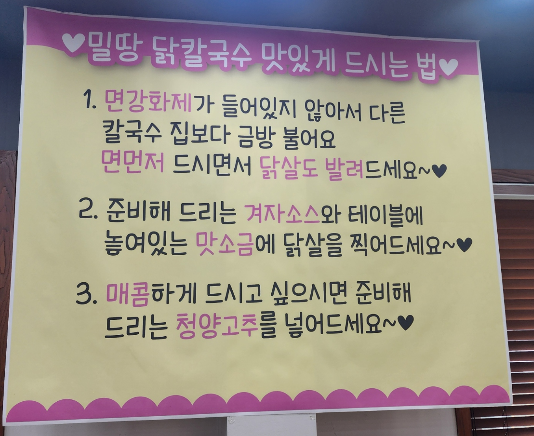 ♥밀땅 닭칼국수 맛있게 드시는 법♥
1. 면강화제가 들어있지 않아서 다른
칼국수 집보다 금방 불어요
면먼저 드시면서 닭살도 발려드세요~♥
2. 준비해 드리는 겨자소스와 테이블에
놓여있는 맛소금에 닭살을 찍어드세요~♥
3. 매콤하게 드시고 싶으시면 준비해
드리는 청양고추를 넣어드세요~♥